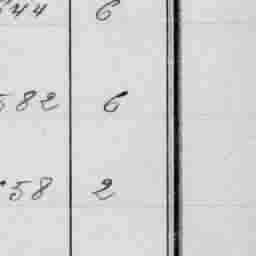 44 6
582 6
58 2